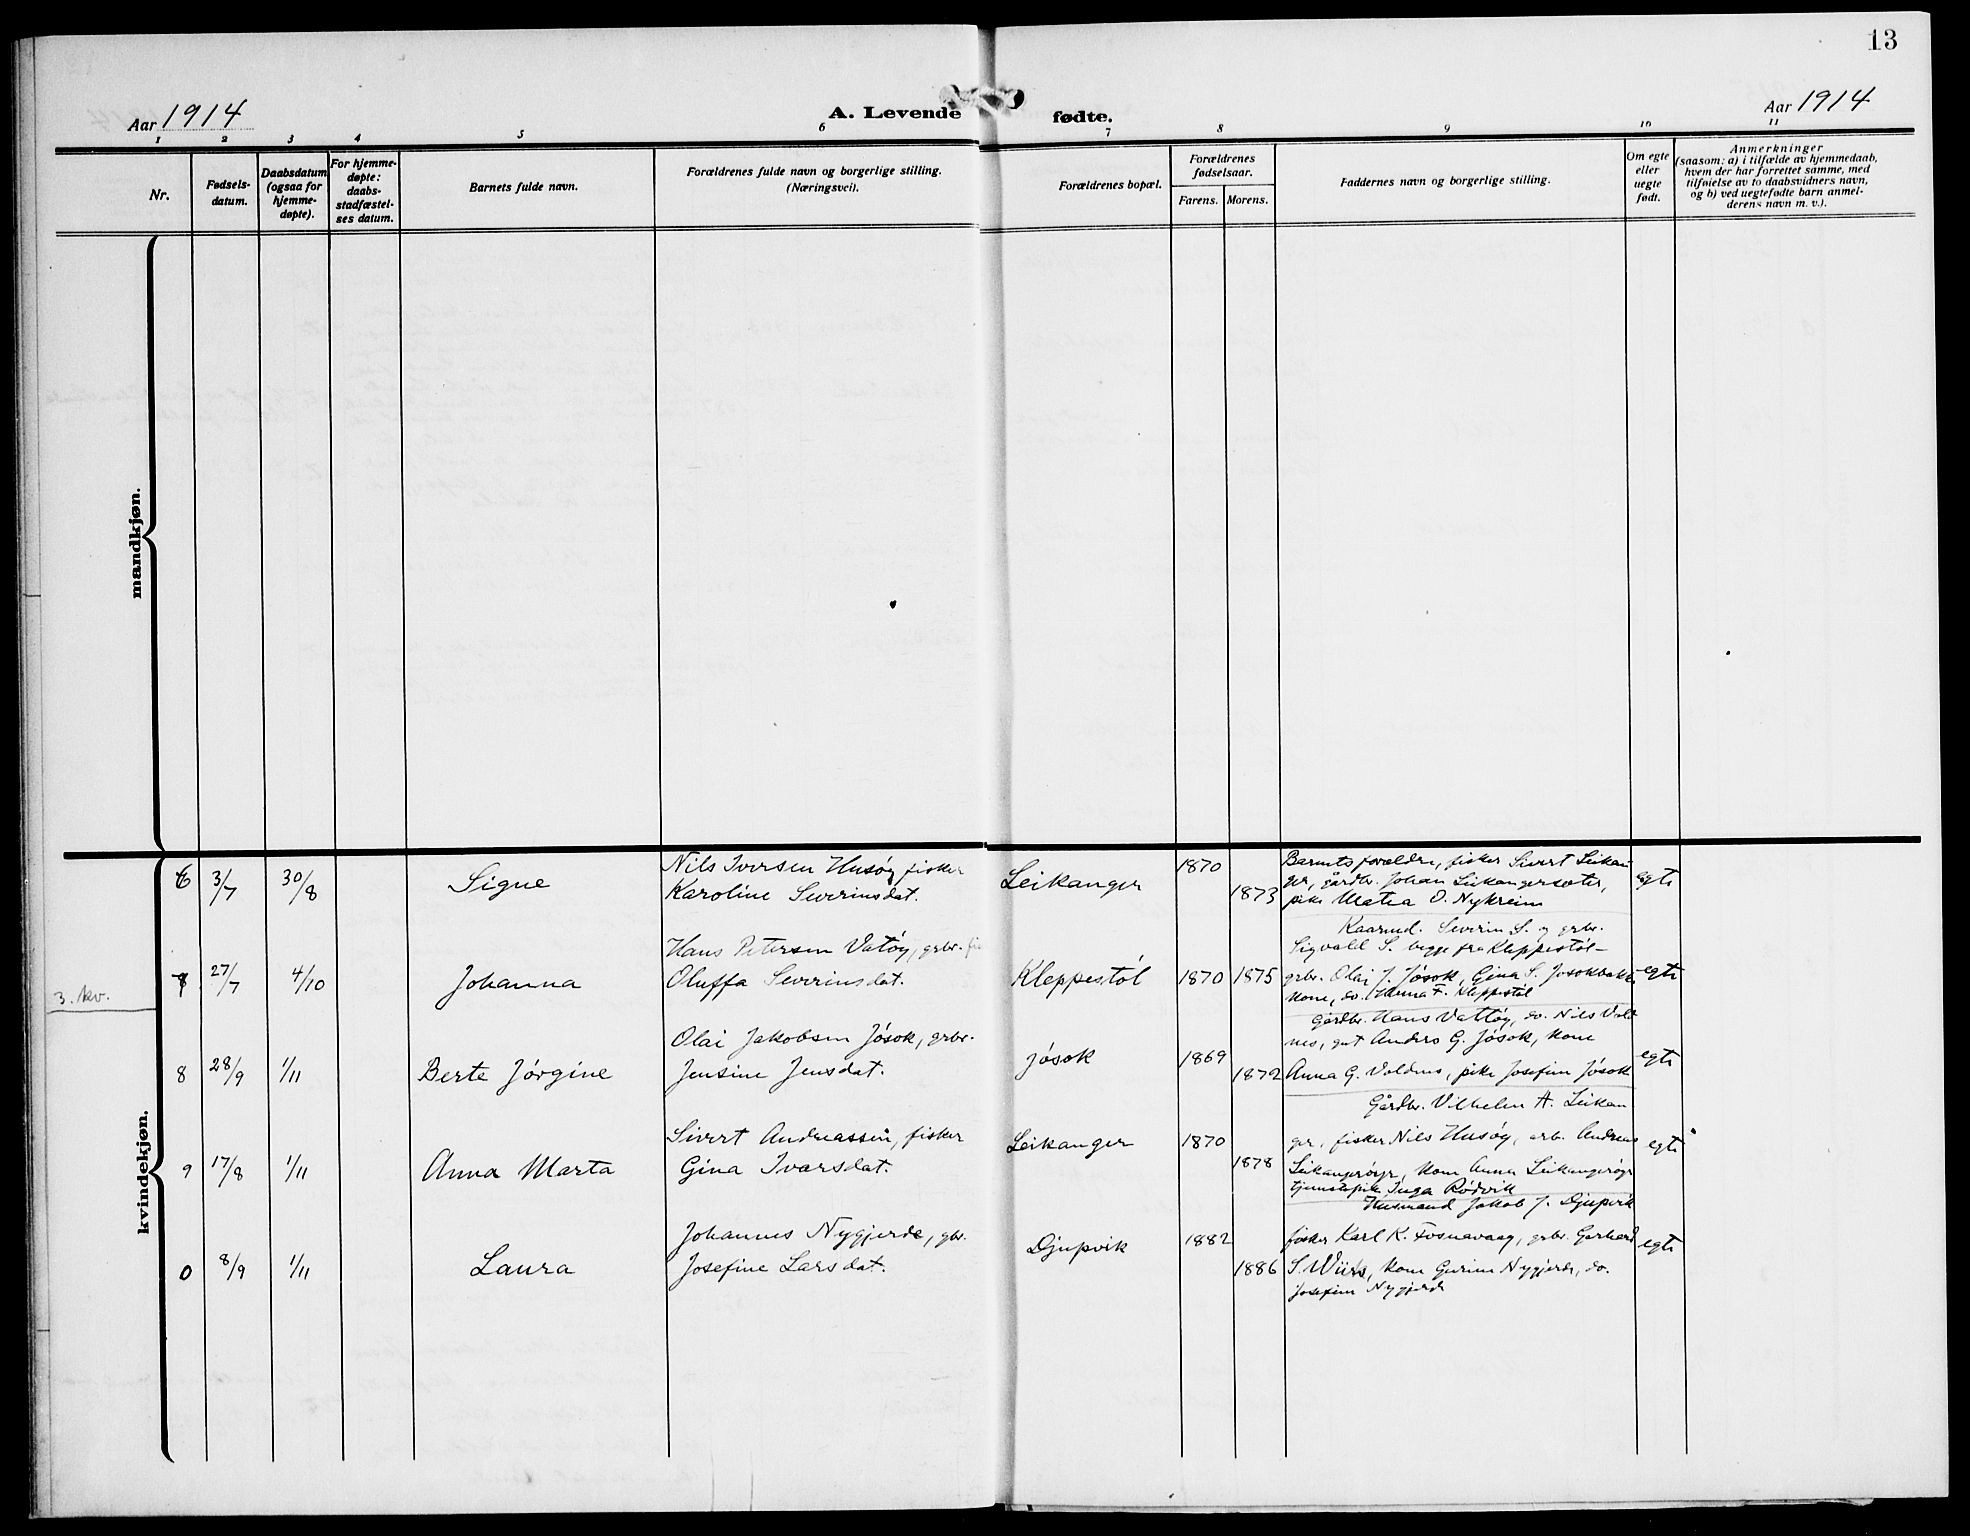 13
Aar 1914
A. Levende fødte.
Aar 1914
1 2 3 4 5 6 7 8 9 10 11
Nr.
Fødsels-
datum.
Daabsdatum
(ogsaa for
hjemme-
døpte).
For hjemme-
døpte:
daabs-
stadfæstel-
ses datum.
Barnets fulde navn.
Forældrenes fulde navn og borgerlige stilling.
(Næringsvei).
Forældrenes bopæl.
Forældrenes
fødselsaar.
Farens. Morens.
Faddernes navn og borgerlige stilling.
Om egte
eller
uegte
født.
Anmerkninger
(saasom: a) i tilfælde av hjemmedaab,
hvem der har forrettet samme, med
tilføielse av to daabsvidners navn,
og b) ved uegtefødte barn anmel-
derens navn m. v.).
mandkjøn.
kvindekjøn.
3. kv.
6 3/7 30/8 Signe
Nils Iversen Husøy fisker
Karoline Severinsdat.
Leikanger 1870 1873
Barnets forældre, fisker Sivert Leikan
ger, gårdbr. Johan Leikangersæter,
pike Matea O. Nykreim
egte
7 27/7 4/10 Johanna
Hans Petersen Vatøy, grbr.
Oluffa Severinsdat.
Kleppestøl 1870 1875
Kaarmd. Severin S. og grbr.
Sigvald S. begge fra Kleppestøl
grbr. Olai J. Jøsok, Gina S. Jøsokbakke
kone, do. F. Kleppestøl
egte
8 28/9 1/11 Berte Jørgine
Olai Jakobsen Jøsok, grbr.
Jensine Jensdat.
Jøsok 1869 1872
Gårdbr. Hans Vattøy, do. Nils Vold
nes, gut Anders G. Jøsok, kone
Anna G. Voldnes, pike Josefine Jøsok
egte
9 17/8 1/11 Anna Marta
Sivert Andreassen, fisker
Gina Ivarsdat.
Leikanger 1870 1878
Gårdbr. Vilhelm A. Leikan
ger, fisker Nils Husøy, Andreas
Leikangerøyr, kone Anna Leikangerøyr
tjenestepike Inga Rødvik
egte
0 8/9 1/11 Laura
Johannes Nygjerde, gbr.
Josefine Larsdat.
Djupvik 1882 1886
Husmand Jakob J. Djupvik
fisker Karl K. Fosnavaag, grbr. Gerhard
S. Wiik, kone Gurine Nygjerde, do.
Josefine Nygjerde
egte